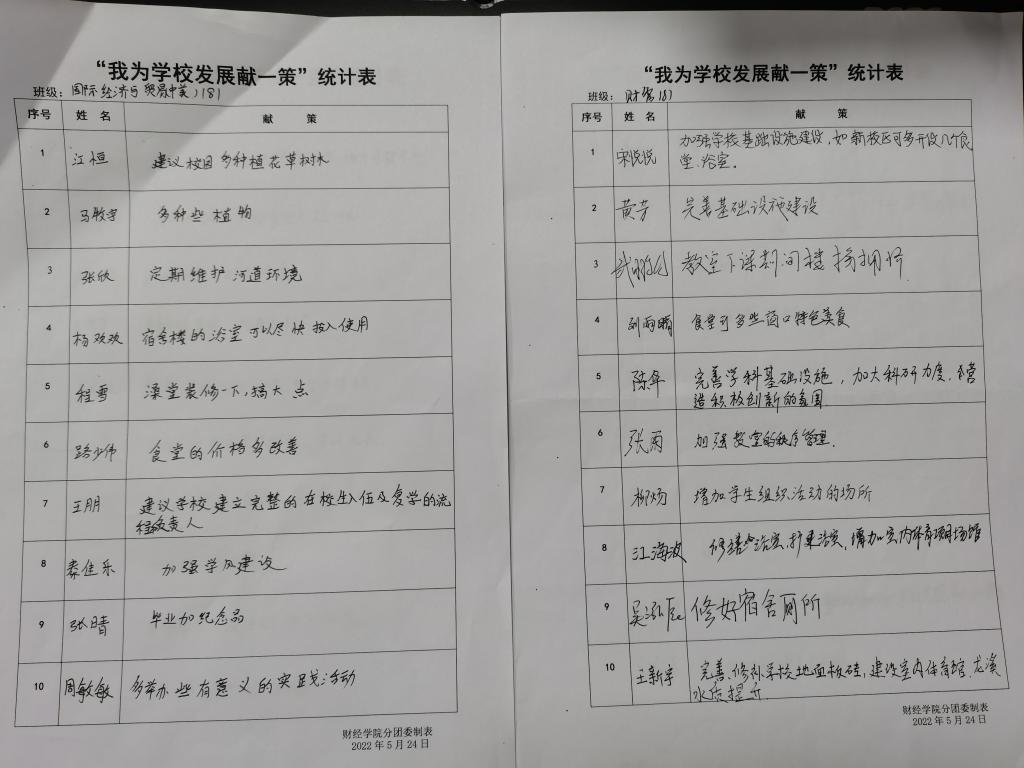 “我为学校发展献一策”统计表
班级：国际经济与贸易(中美)181
序号 姓 名 献 策
1 江恒 建议校园多种植花草树木
2 马敏宇 多种些植物
3 张欣 定期维护河道环境
4 杨欢欢 宿舍楼的浴室可以尽快投入使用
5 程雪 澡堂装修一下,搞大点
6 路少伟 食堂的价格多改善
7 王朋 建议学校建立完整的在校生入伍及复学的流
程负责人
8 秦佳乐 加强学风建设
9 张晴 毕业加纪念品
10 周敏敏 多举办些有意义的实践活动
财经学院分团委制表
2022年5月24日
“我为学校发展献一策”统计表
班级：财管181
序号 姓 名 献 策
1 宋悦悦 加强学校基础设施建设,如新校区可多开设几个食
堂、浴室。
2 黄芳 完善基础设施建设
3 教室下课期间楼
4 刘雨晴 食堂可多些窗口特色美食
5 陈年 完善学科基础设施，加大科研力度、营
造积极创新的氛围
6 张雨 加强教室的秩序管理.
7 柳炀 增加学生组织活动的场所
8 江海波 修缮浴室、扩建浴室,增加室内体育项目场馆
9 吴泓辰 修好宿舍厕所
10 王新宇 完善、修补学校地面板砖,建设室内体育馆、龙溪
水质提升
财经学院分团委制表
2022年5月24日